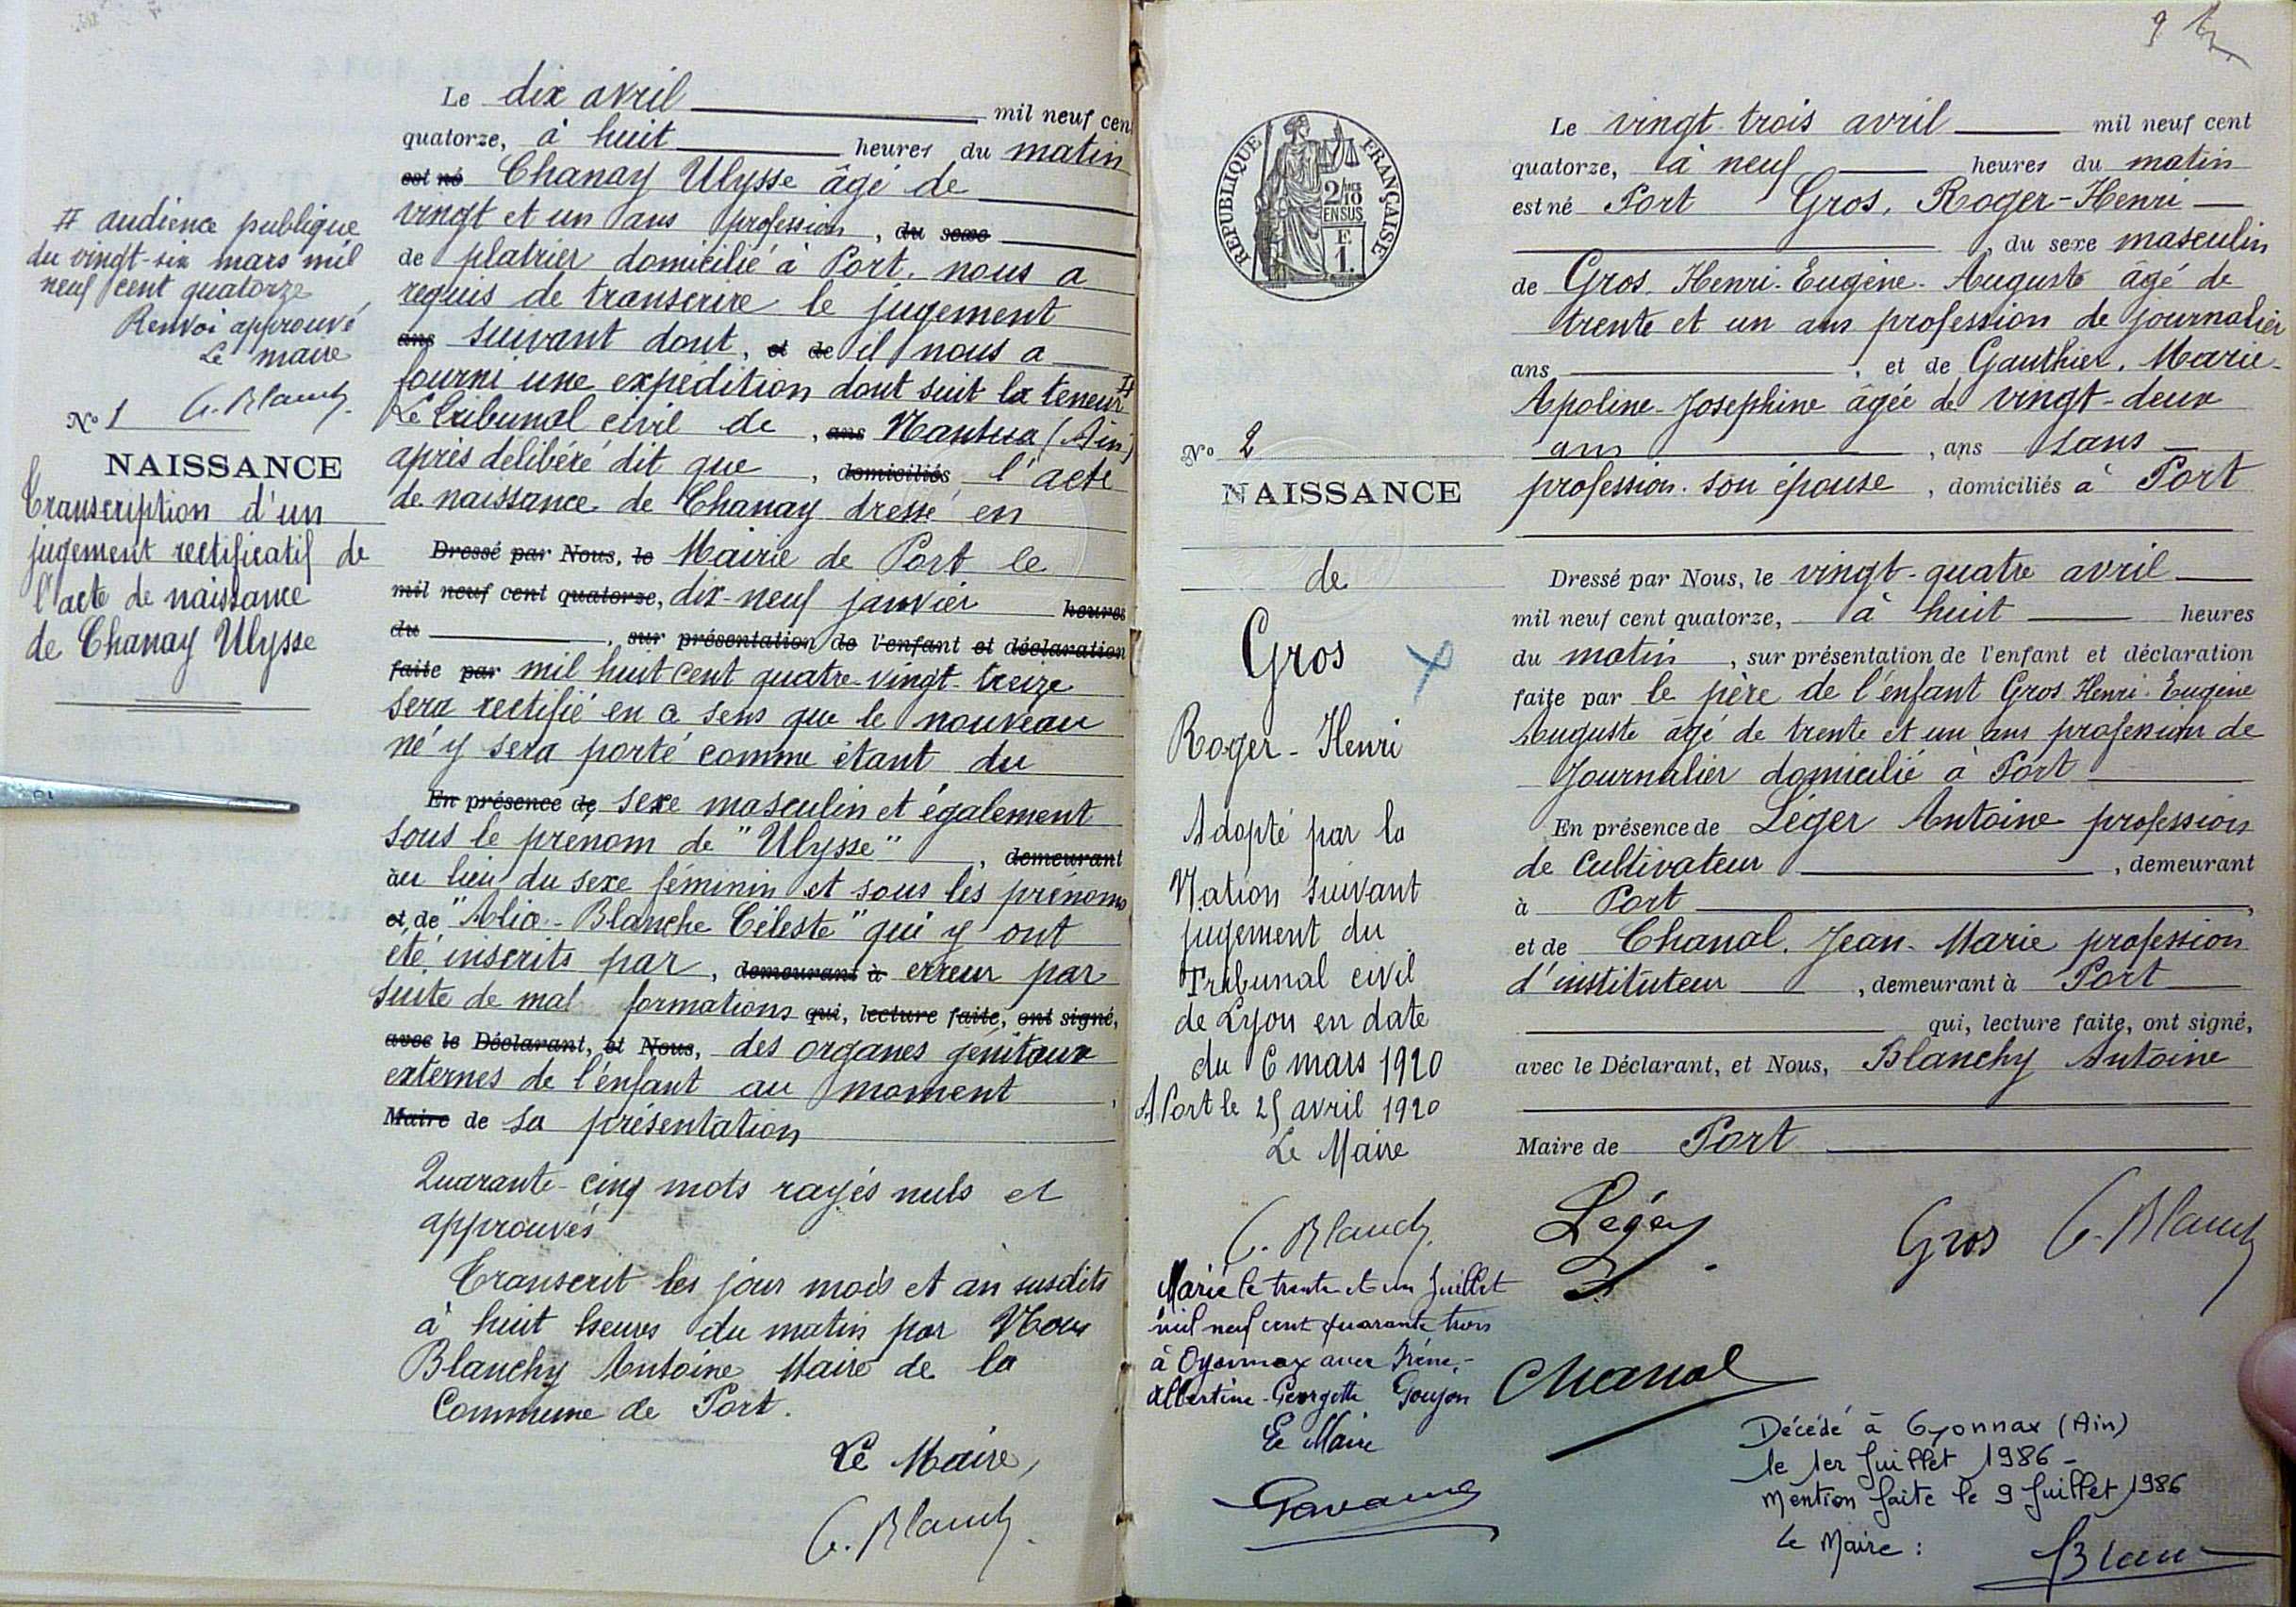 Le dix avril mil neuf cen
quatorze, à huit heures du matin
est né Chanay Ulysse âgé de
vingt et un ans profession, du sexe
de platrier domicilié à Port. nous a
requis de transcrire le jugement
ans suivant dont, et de il nous a
fourni une expédition dont suit la teneur #
Le tribunal civil de, ans Nantua (Ain)
après délibéré dit que, domiciliés l'acte
de naissance de Chanay dressé en
Dressé par Nous, le Mairie de Port le
mil neuf cent quatorze, dix-neuf janvier heures
du, sur présentation de l'enfant et déclaration
faite par mil huit cent quatre-vingt-treize
sera rectifié en ce sens que le nouveau
né y sera porté comme étant du
En présence de, sexe masculin et également
sous le prénom de "Ulysse", demeurant
au lieu du sexe féminin et sous les prénoms
et, de "Alice-Blanche Céleste" qui y ont
été inscrits par, demeurant à erreur par
suite de mal formations qui, lecture faite, ont signé,
avec le Déclarant, et Nous, des organes génitaux
externes de l'enfant au moment,
Maire de sa présentation
Quarante-cinq mots rayés nuls et
approuvés
Transcrit les jour mois et an susdits
à huit heures du matin par Nous
Blanchy Antoine Maire de la
Commune de Port.
Le Maire,
A. Blanchy.
# audience publique
du vingt-six mars mil
neuf cent quatorze
Renvoi approuvé
Le maire
A. Blanchy.
No 1
NAISSANCE
Transcription d'un
jugement rectificatif de
l'acte de naissance
de Chanay Ulysse
9
REPUBLIQUE FRANÇAISE
2/10
EN SUS
F.
1.
No 2
NAISSANCE
de
Gros
Roger-Henri
Adopté par la
Nation suivant
jugement du
Tribunal civil
de Lyon en date
du 6 mars 1920
A Port le 25 avril 1920
Le Maire
A. Blanchy.
Marié le trente et un Juillet
mil neuf cent quarante trois
à Oyonnax avec Irène-
Albertine-Georgette Goujon
Le Maire
Le vingt trois avril mil neuf cent
quatorze, à neuf heures du matin
est né Port Gros, Roger-Henri
, du sexe masculin
de Gros, Henri-Eugène-Auguste âgé de
trente et un ans profession de journalier
ans, et de Gauthier, Marie-
Apoline-Josephine âgée de vingt-deux
ans, ans sans
profession. son épouse, domiciliés à Port
Dressé par Nous, le vingt-quatre avril
mil neuf cent quatorze, à huit heures
du matin, sur présentation de l'enfant et déclaration
faite par le père de l'enfant Gros Henri-Eugène
Auguste âgé de trente et un ans profession de
Journalier domicilié à Port
En présence de Léger Antoine profession
de cultivateur, demeurant
à Port,
et de Chanal, Jean-Marie profession
d'instituteur, demeurant à Port
qui, lecture faite, ont signé,
avec le Déclarant, et Nous, Blanchy Antoine
Maire de Port
Léger Gros A. Blanchy
Chanal
Décédé à Oyonnax (Ain)
le 1er Juillet 1986-
Mention faite le 9 Juillet 1986
Le Maire :